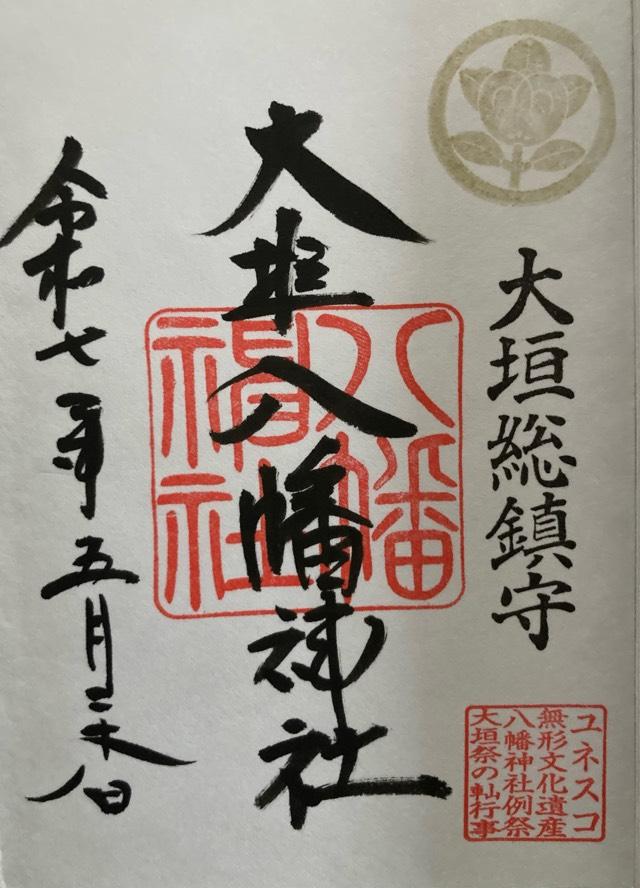 大垣総鎮守
ユネスコ
無形文化遺産
八幡神社例祭
大垣祭の軕行事
大垣八幡神社
八幡
神社
令和七年五月日